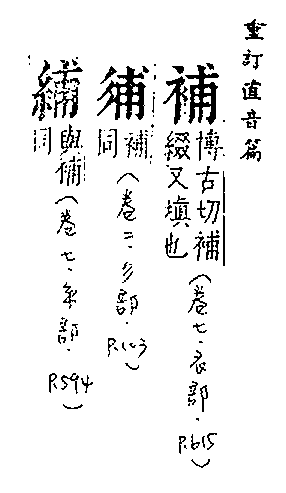 重訂直音篇
補 博古切補綴又填也（卷七．衣部．P.615）
𢔟 補同（卷二．彳部．P.103）
䋠 與補同（卷七．糸部．P.594）